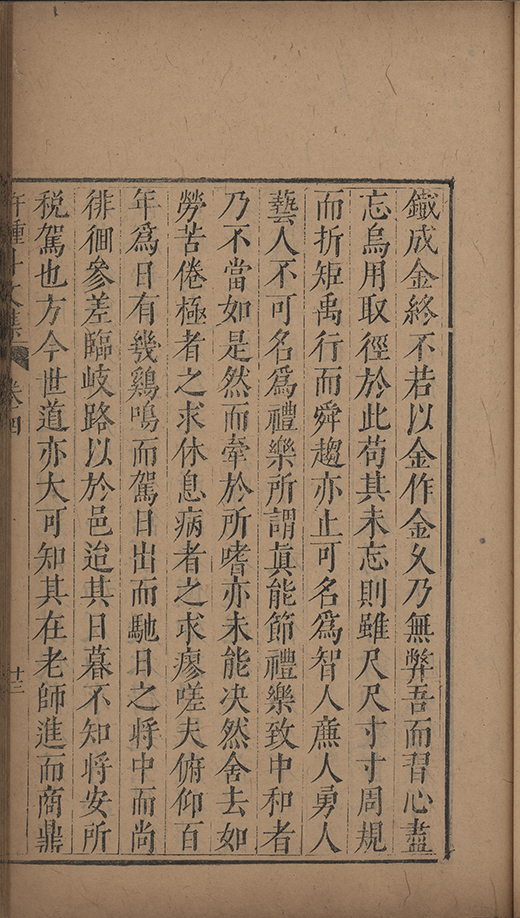 鐵成金終不若以金作金乆乃無弊吾而習心盡
忘烏用取徑於此苟其未忘則雖尺尺寸寸周規
而折矩禹行而舜趨亦止可名爲智人亷人勇人
藝人不可名爲禮樂所謂眞能節禮樂致中和者
乃不當如是然而牽於所嗜亦未能决然舍去如
勞苦倦極者之求休息病者之求瘳嗟夫俯仰百
年爲日有幾鷄鳴而駕日出而馳日之將中而尚
徘徊參差臨岐路以於邑迨其日暮不知將安所
税駕也方今世道亦大可知其在老師進而商鼎
許鍾斗文集 卷四 廿三